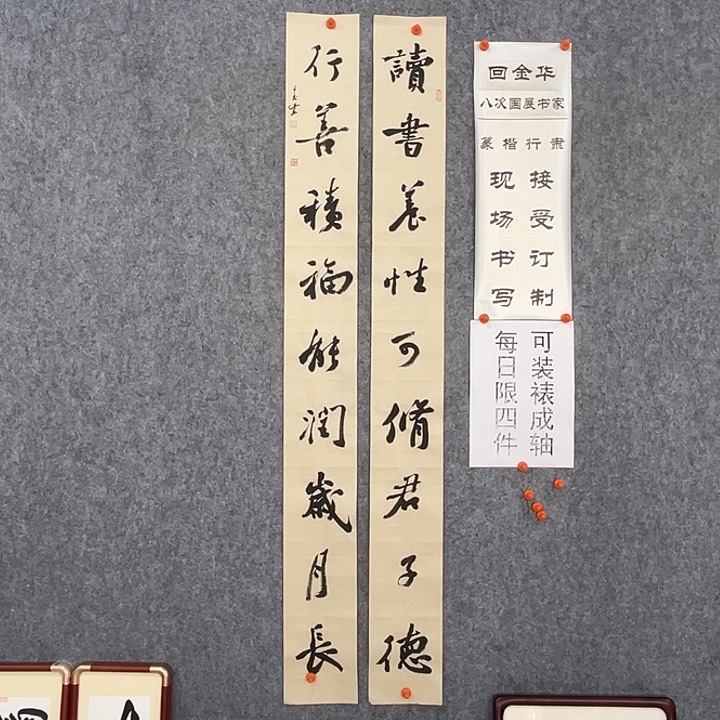 讀書養性可脩君子德
行善積福能潤歲月長
回金华
八次国展书家
篆楷行隶
接受订制
现场书写
可装裱成轴
每日限四件